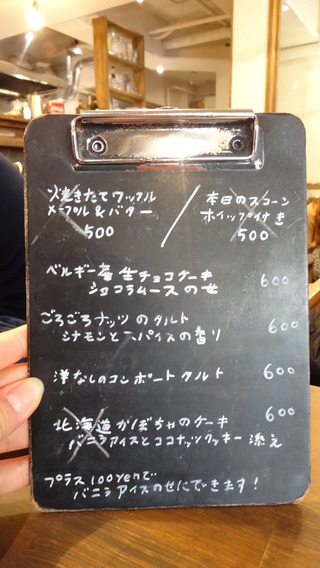 焼きたてワッフル
メープル&バター
500
本日のスコーン
ホイップ付き
500
ベルギー産 生チョコケーキ 600
ショコラムースのせ
ごろごろナッツのタルト 600
シナモンとスパイスの香り
洋なしのコンポートタルト 600
北海道かぼちゃのケーキ 600
バニラアイスとココナッツクッキー添え
プラス100yenで
バニラアイスのせにできます!